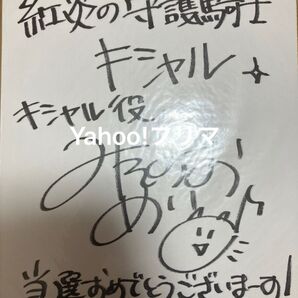 紅炎の守護騎士
キシャル
キシャル役
Yahoo!フリマ
当選おめでとうございまーす!